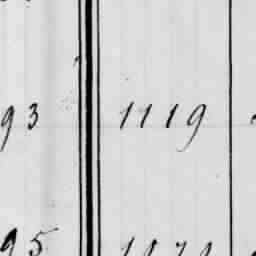 93 1119
95